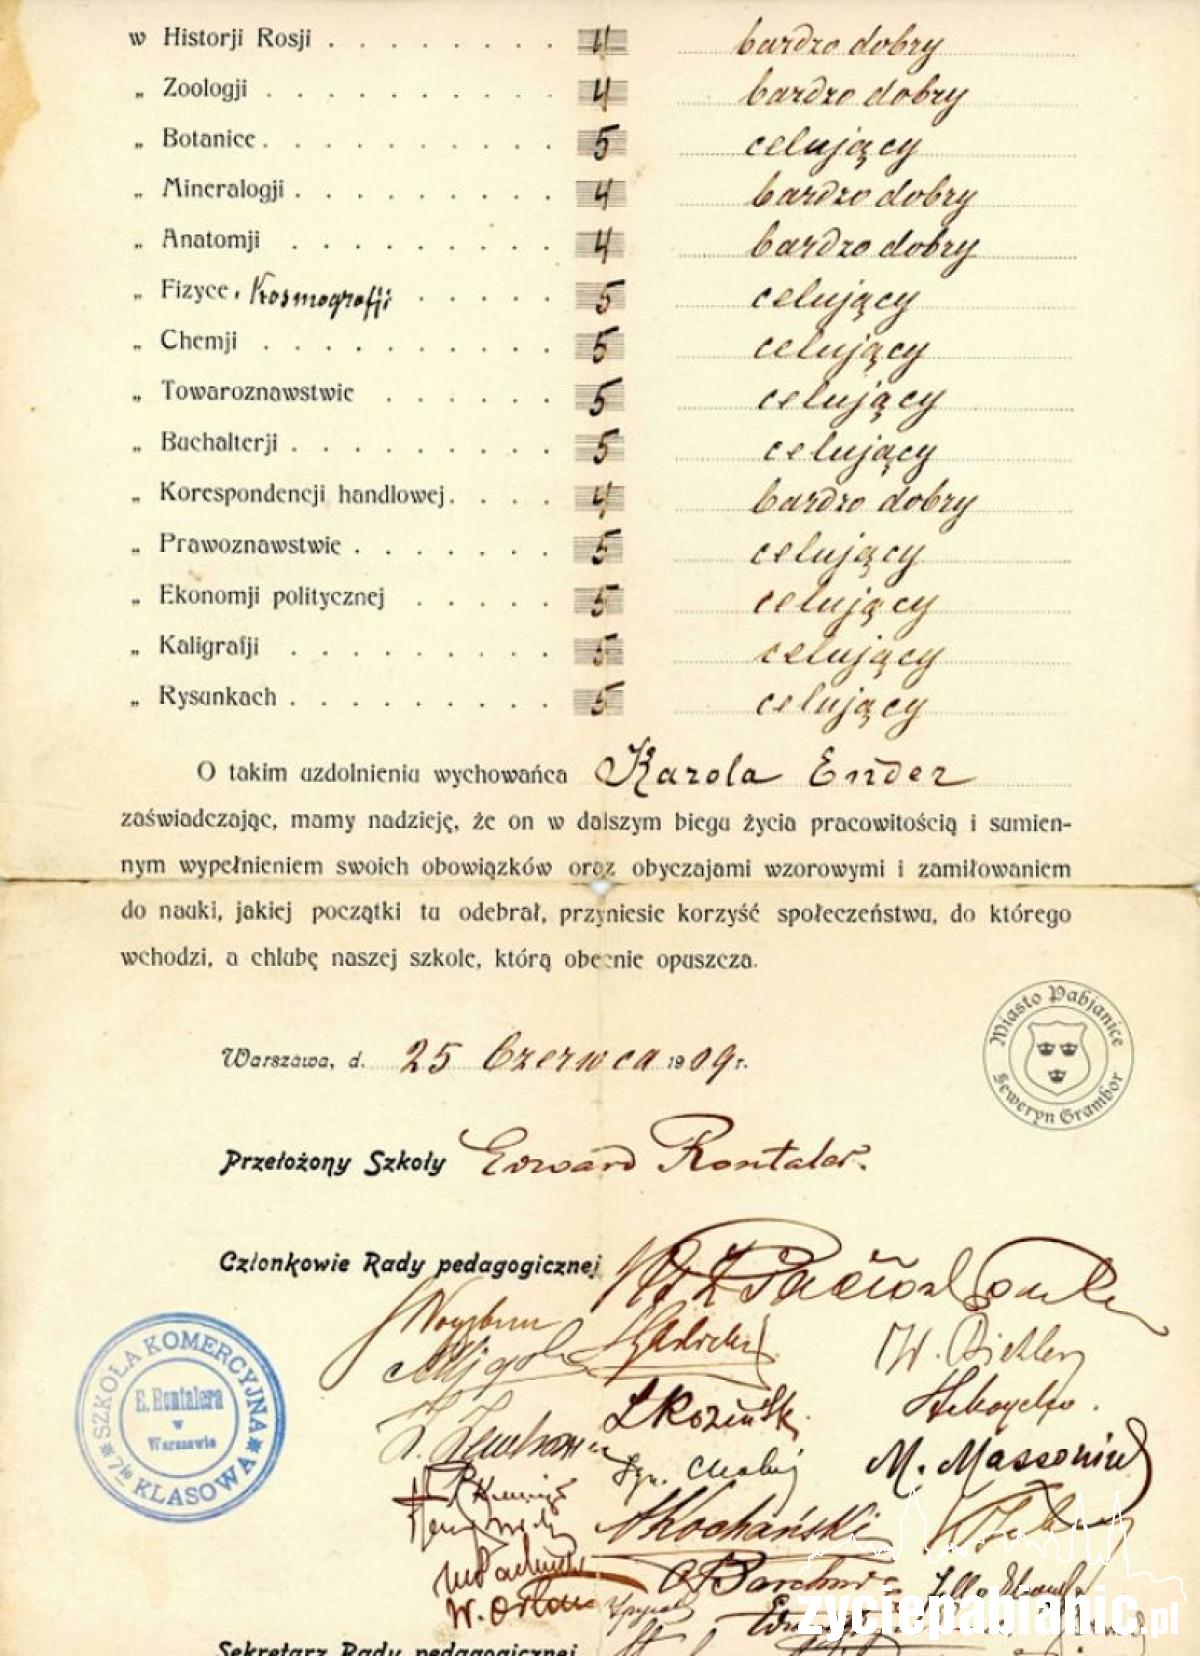 w Historji Rosji . . . . . . . . 4 bardzo dobry
„ Zoologji . . . . . . . . . . 4 bardzo dobry
„ Botanice . . . . . . . . . . 5 celujący
„ Mineralogji . . . . . . . . . 4 bardzo dobry
„ Anatomji . . . . . . . . . 4 bardzo dobry
„ Fizyce, Kosmografji . . . . . 5 celujący
„ Chemji . . . . . . . . . . 5 celujący
„ Towaroznawstwie . . . . . . 5 celujący
„ Buchalterji . . . . . . . . . 5 celujący
„ Korespondencji handlowej . . . 4 bardzo dobry
„ Prawoznawstwie . . . . . . . 5 celujący
„ Ekonomji politycznej . . . . . 5 celujący
„ Kaligrafji . . . . . . . . . 5 celujący
„ Rysunkach . . . . . . . . . 5 celujący
O takim uzdolnieniu wychowańca Karola Ender
zaświadczając, mamy nadzieję, że on w dalszym biegu życia pracowitością i sumien-
nym wypełnieniem swoich obowiązków oraz obyczajami wzorowymi i zamiłowaniem
do nauki, jakiej początki tu odebrał, przyniesie korzyść społeczeństwu, do którego
wchodzi, a chlubę naszej szkole, którą obecnie opuszcza.
Miasto Pabjanice
Seweryn Grambor
Warszawa, d. 25 Czerwca 1909 r.
Przełożony Szkoły Edward Rontaler.
Członkowie Rady pedagogicznej
SZKOŁA KOMERCYJNA
E. Rontalera
w
Warszawie
7io KLASOWA
M. Massonius
Kochański
W. Orłow
życiepabianic.pl
Sekretarz Rady pedagogicznej